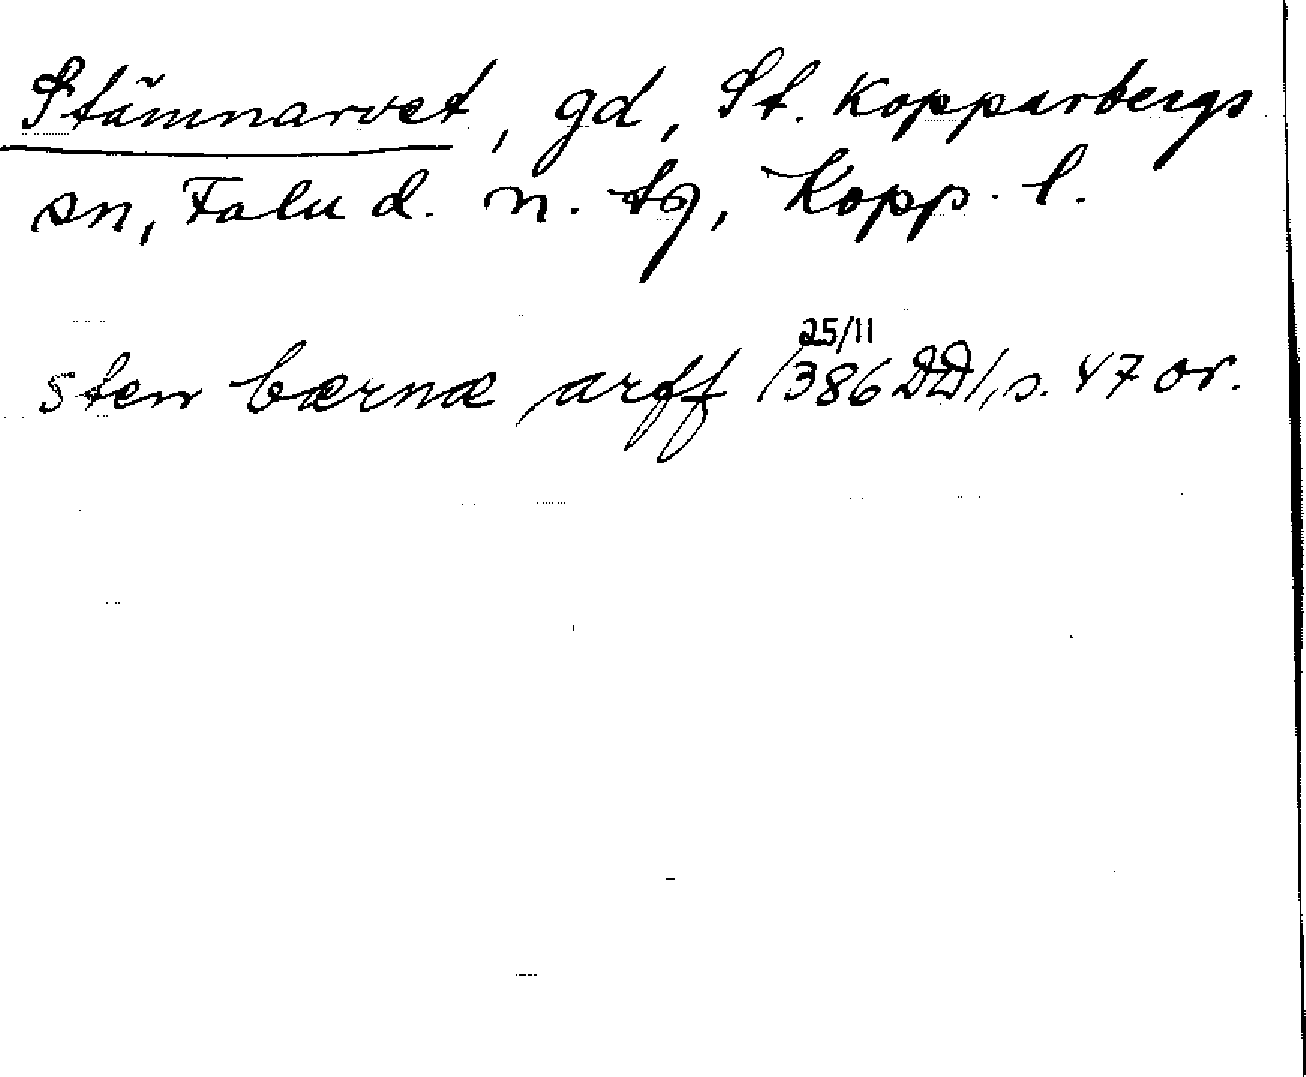 Stämnarvet, gd, St. Kopparbergs
sn, Falu d. n. tg, Kopp. l.
25/11
sten bærnæ arff /1386 DD/, s. 47 or.